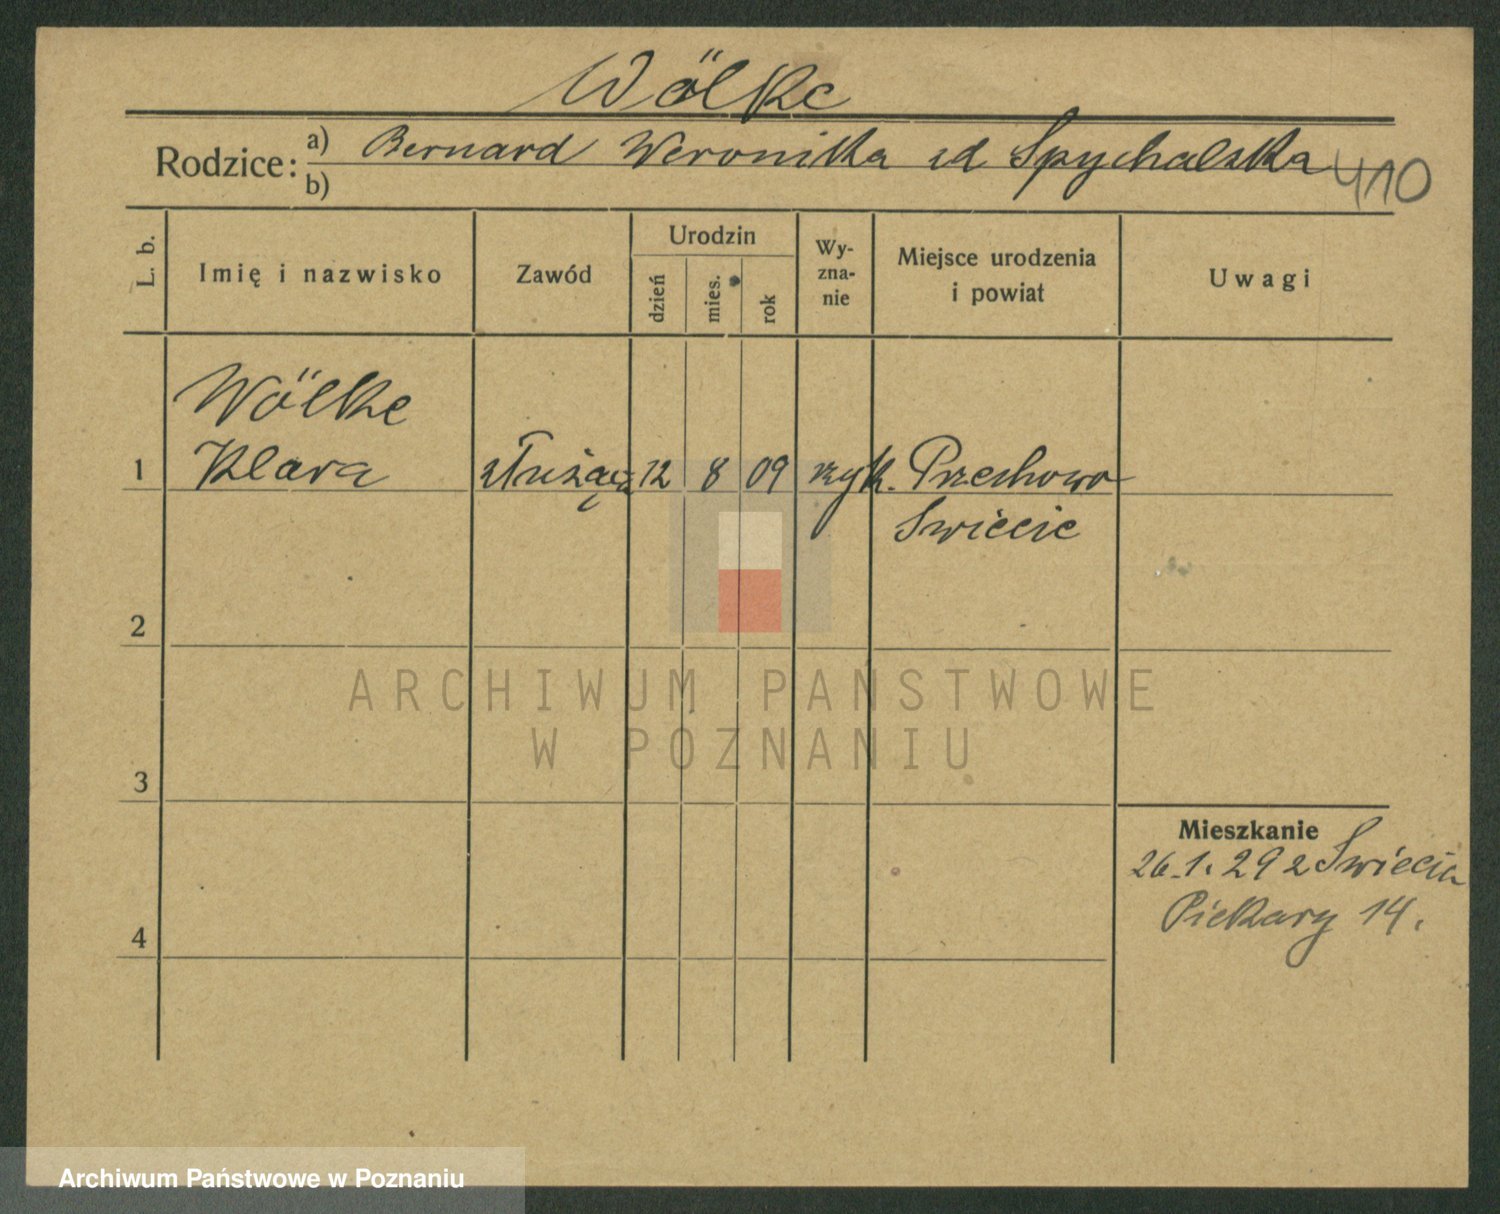 Wölke
Rodzice: a) Bernard Weronika zd Spychalska 410
b)
L. b. Imię i nazwisko Zawód Urodzin dzień mies. rok Wy-zna-nie Miejsce urodzenia i powiat Uwagi
Wölke
1 Klara służąca 12 8 09 rzyk. Przechowo
Swiecie
2
ARCHIWUM PAŃSTWOWE
W POZNANIU
3
Mieszkanie
26.1.29 z Swiecia
Piekary 14.
4
Archiwum Państwowe w Poznaniu